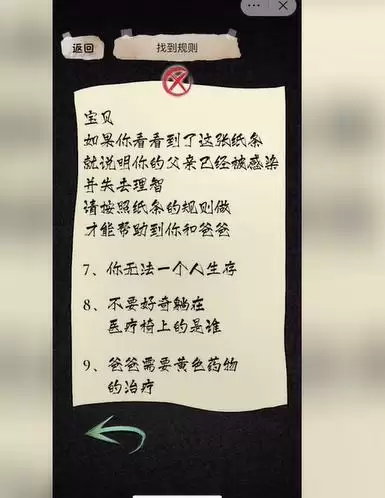 返回
找到规则
宝贝
如果你看看到了这张纸条
就说明你的父亲已经被感染
并失去理智
请按照纸条的规则做
才能帮助到你和爸爸
7、你无法一个人生存
8、不要好奇躺在
医疗椅上的是谁
9、爸爸需要黄色药物
的治疗